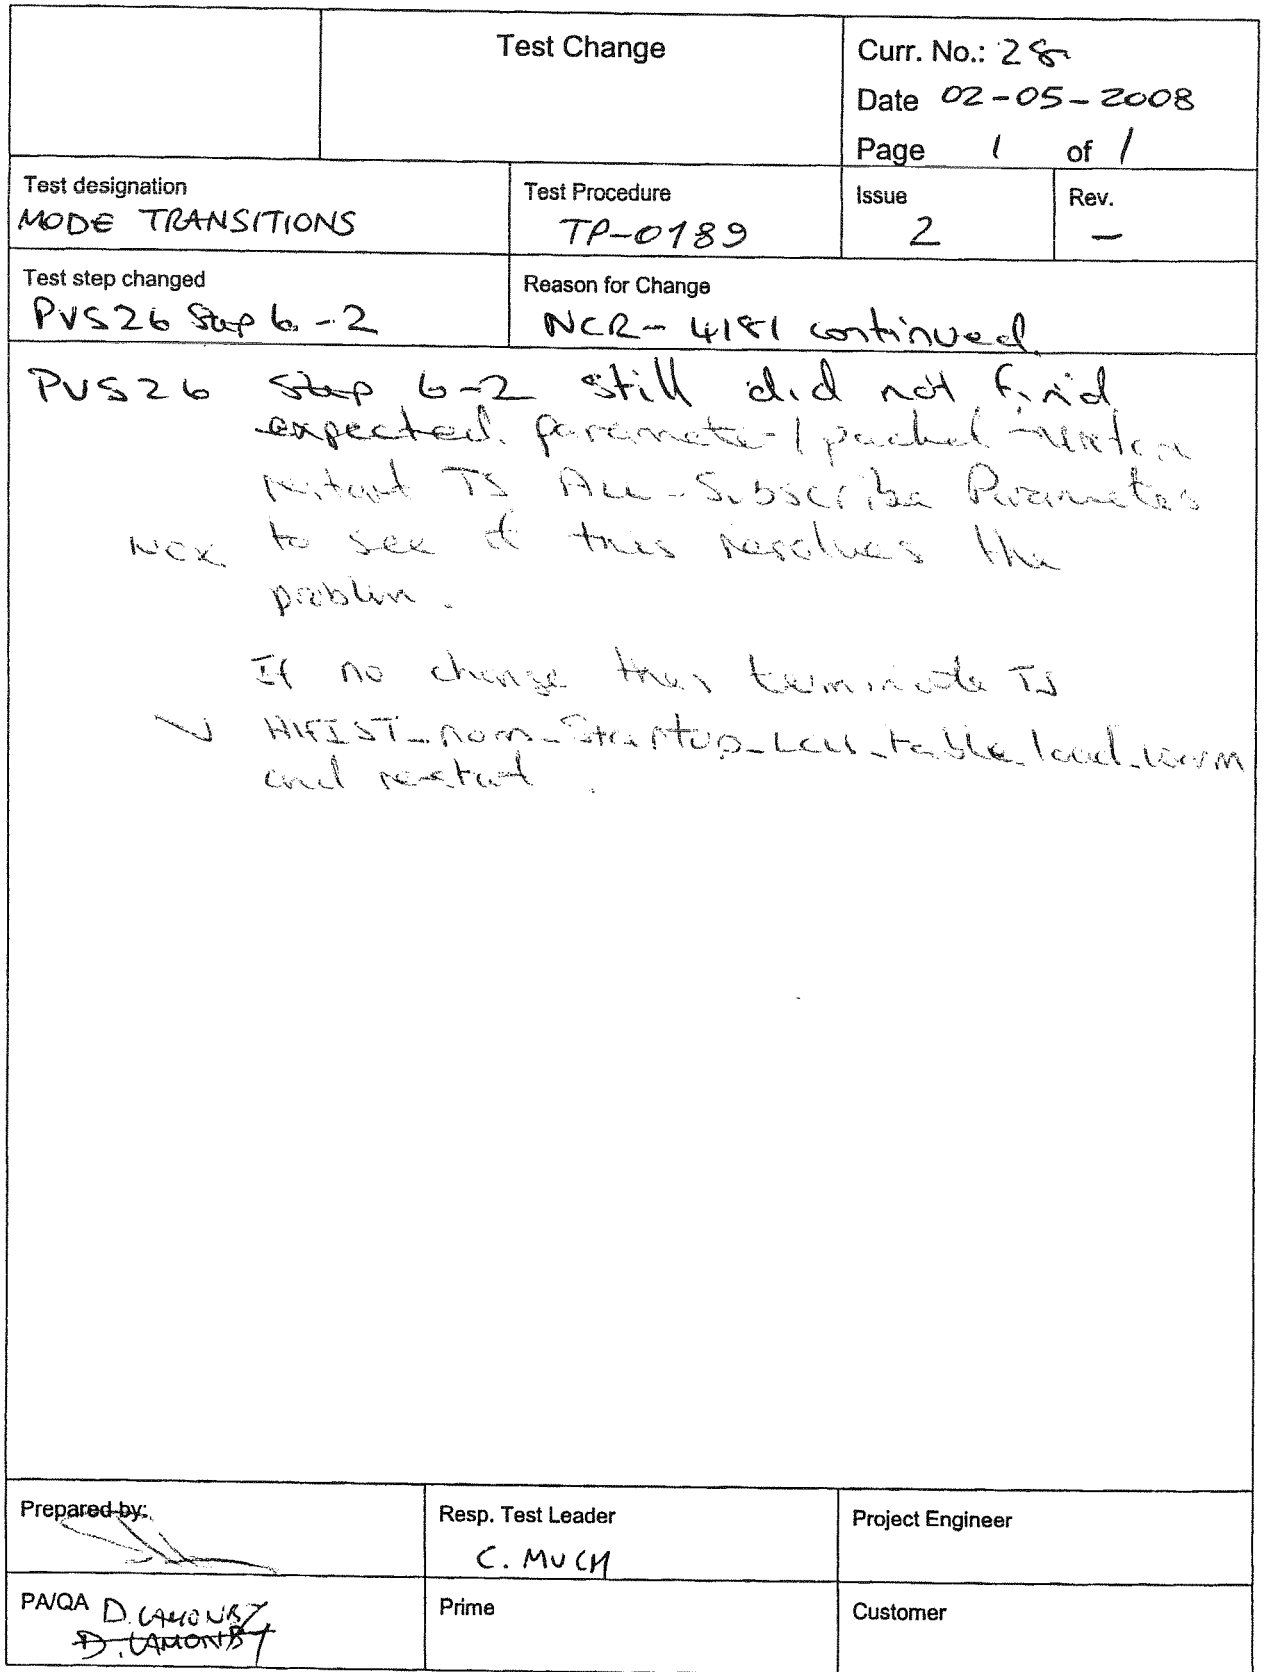 Test Change
Curr. No.: 28
Date 02-05-2008
Page 1 of 1
Test designation
MODE TRANSITIONS
Test Procedure
TP-0189
Issue
2
Rev.
—
Test step changed
PVS26 Step 6-2
Reason for Change
NCR-4181 continued
PVS26 Step 6-2 still did not find
expected parameter / packet
restart TS All-Subscribe Parameters
to see if this resolves the
problem.
If no change then terminate TS
and restart.
Prepared by:
Resp. Test Leader
C. MUCH
Project Engineer
PA/QA D. LAMONBY
D. LAMONBY
Prime
Customer